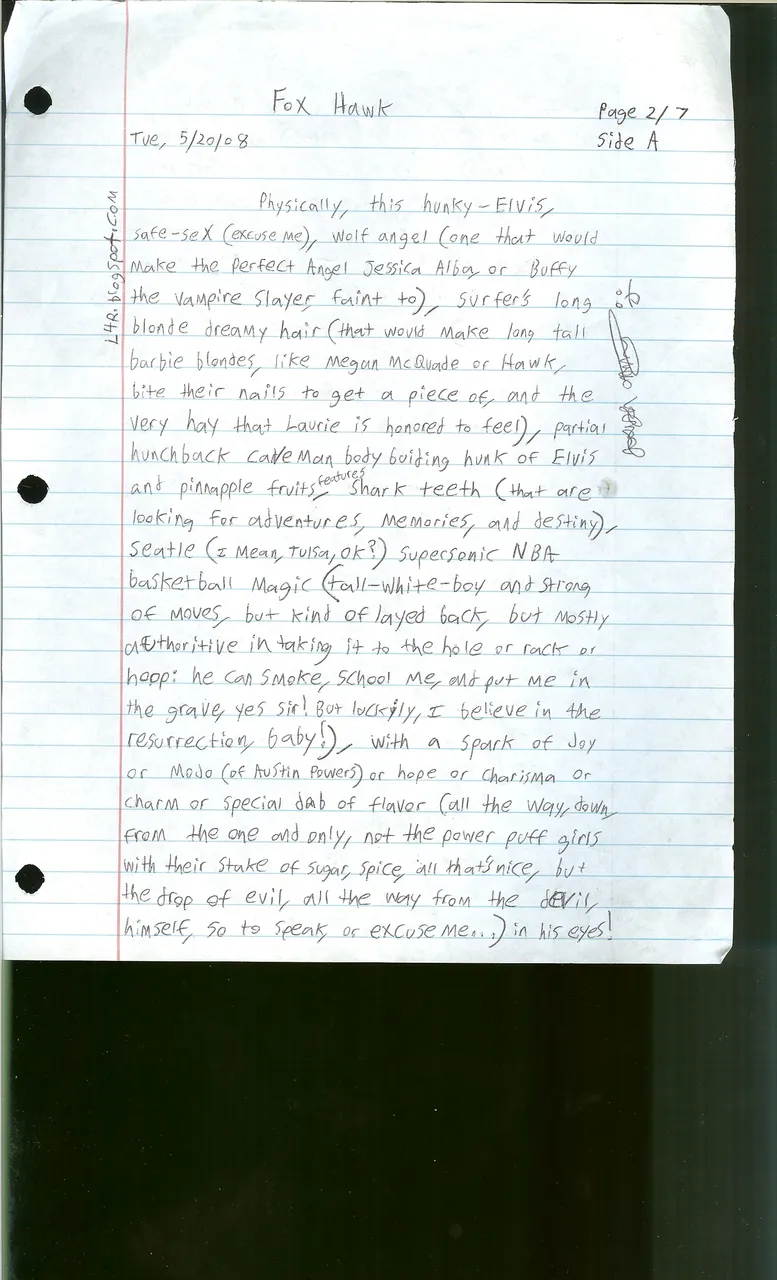 Fox Hawk
Page 2/7
Tue, 5/20/08
Side A
L4R.blogspot.com
Physically, this hunky-Elvis,
safe-sex (excuse me), wolf angel (one that would
make the perfect Angel Jessica Alba, or Buffy
the vampire slayer, faint to), surfer's long
blonde dreamy hair (that would make long tall
barbie blondes, like Megan McQuade or Hawk,
bite their nails to get a piece of, and the
very hay that Laurie is honored to feel), partial
hunchback cave man body buiding hunk of Elvis
and pinnapple fruits, features shark teeth (that are
looking for adventures, memories, and destiny),
seatle (I mean, Tulsa, OK?) supersonic NBA
basketball magic (tall-white-boy and strong
of moves, but kind of layed back, but mostly
authoritive in taking it to the hole or rack or
hoop: he can smoke, school me, and put me in
the grave, yes sir! But luckily, I believe in the
resurrection, baby!), with a spark of Joy
or Modo (of Austin Powers) or hope or charisma or
charm or special dab of flavor (all the way, down,
from the one and only, not the power puff girls
with their stake of sugar, spice, all that's nice, but
the drop of evil, all the way from the devil,
himself, so to speak, or excuse me...) in his eyes!